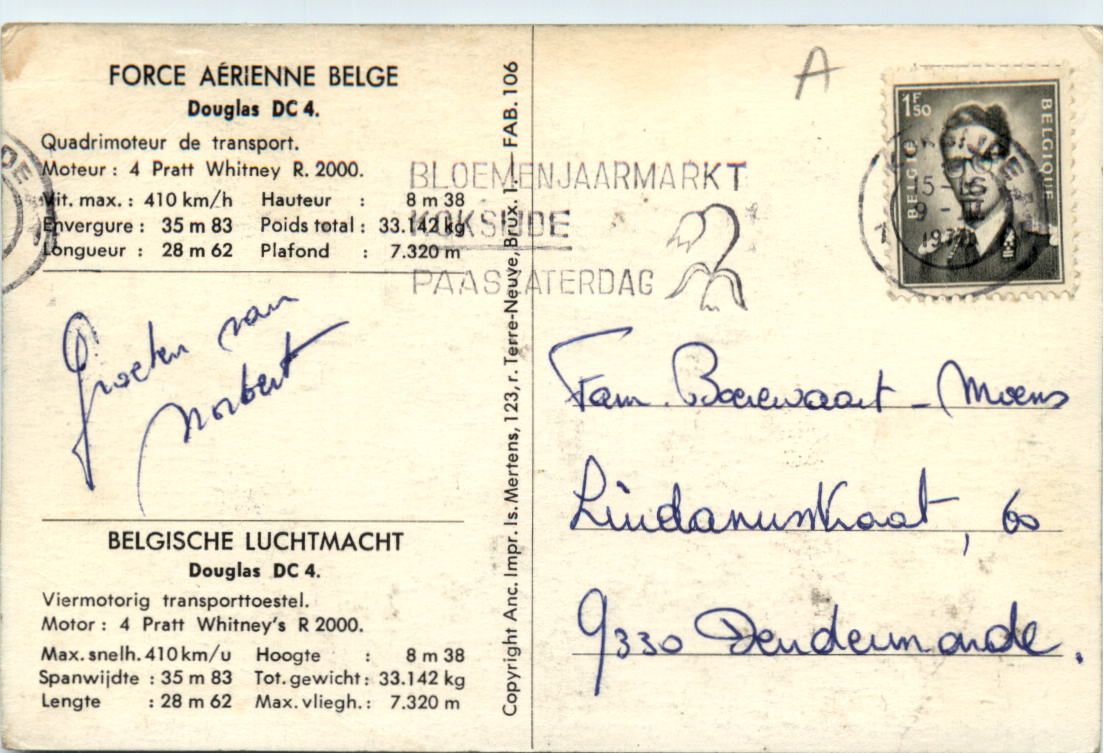 FORCE AÉRIENNE BELGE
Douglas DC 4.
Quadrimoteur de transport.
Moteur : 4 Pratt Whitney R. 2000.
Vit. max. : 410 km/h Hauteur : 8 m 38
Envergure : 35 m 83 Poids total : 33.142 kg
Longueur : 28 m 62 Plafond : 7.320 m
Groeten van
Norbert
BELGISCHE LUCHTMACHT
Douglas DC 4.
Viermotorig transporttoestel.
Motor : 4 Pratt Whitney's R 2000.
Max. snelh. 410 km/u Hoogte : 8 m 38
Spanwijdte : 35 m 83 Tot. gewicht : 33.142 kg
Lengte : 28 m 62 Max. vliegh. : 7.320 m
Copyright Anc. Impr. Is. Mertens, 123, r. Terre-Neuve, Brux. 1. — FAB. 106
A
BLOEMENJAARMARKT
KOKSIJDE
PAASZATERDAG
1F50
BELGIE
BELGIQUE
15-15
Fam. Boerewaart - Moens
Lindanusstraat, 60
9330 Dendermonde.